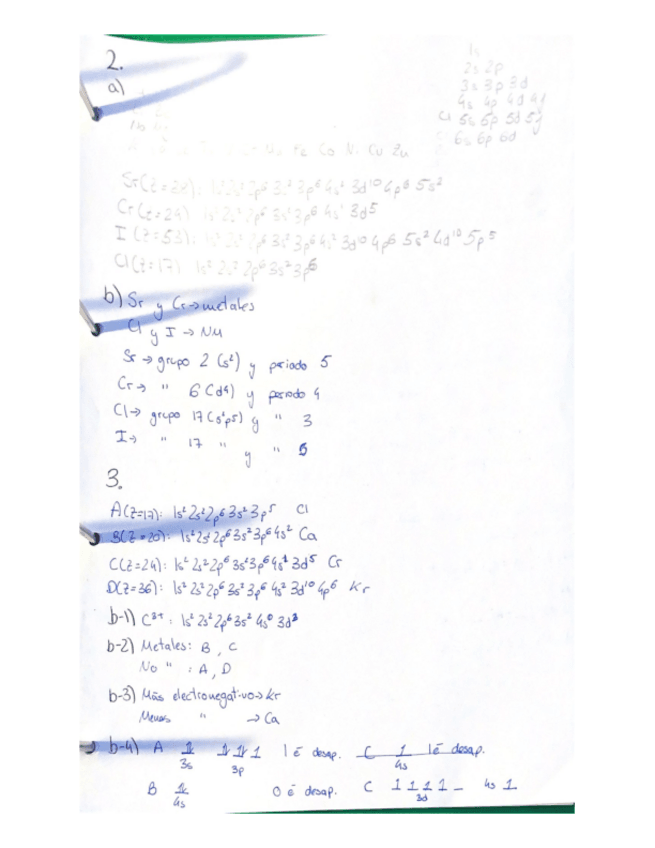 2.
a)
1s
2s 2p
3s 3p 3d
4s 4p 4d 4f
5s 5p 5d 5f
6s 6p 6d
Fe Co Ni Cu Zn
Sr(Z=38): 1s² 2s² 2p⁶ 3s² 3p⁶ 4s² 3d¹⁰ 4p⁶ 5s²
Cr(Z=24) 1s² 2s² 2p⁶ 3s² 3p⁶ 4s¹ 3d⁵
I (Z=53): 1s² 2s² 2p⁶ 3s² 3p⁶ 4s² 3d¹⁰ 4p⁶ 5s² 4d¹⁰ 5p⁵
Cl(Z=17) 1s² 2s² 2p⁶ 3s² 3p⁶
b) Sr y Cr → metales
Cl y I → NM
Sr → grupo 2 (s²) y periodo 5
Cr → " 6 (d⁴) y periodo 4
Cl → grupo 17 (s²p⁵) y " 3
I → " 17 " y " 5
3.
A(Z=17): 1s² 2s² 2p⁶ 3s² 3p⁵ Cl
B(Z=20): 1s² 2s² 2p⁶ 3s² 3p⁶ 4s² Ca
C(Z=24): 1s² 2s² 2p⁶ 3s² 3p⁶ 4s¹ 3d⁵ Cr
D(Z=36): 1s² 2s² 2p⁶ 3s² 3p⁶ 4s² 3d¹⁰ 4p⁶ Kr
b-1) C³⁺: 1s² 2s² 2p⁶ 3s² 4s⁰ 3d³
b-2) Metales: B, C
No " : A, D
b-3) Más electronegativo → Kr
Menos " → Ca
b-4) A 1l 1l 1l 1 1 é desap. C 1 1 é desap.
3s 3p 4s
B 1l 0 é desap. C 1 1 1 1 _ 4s 1
4s 3d